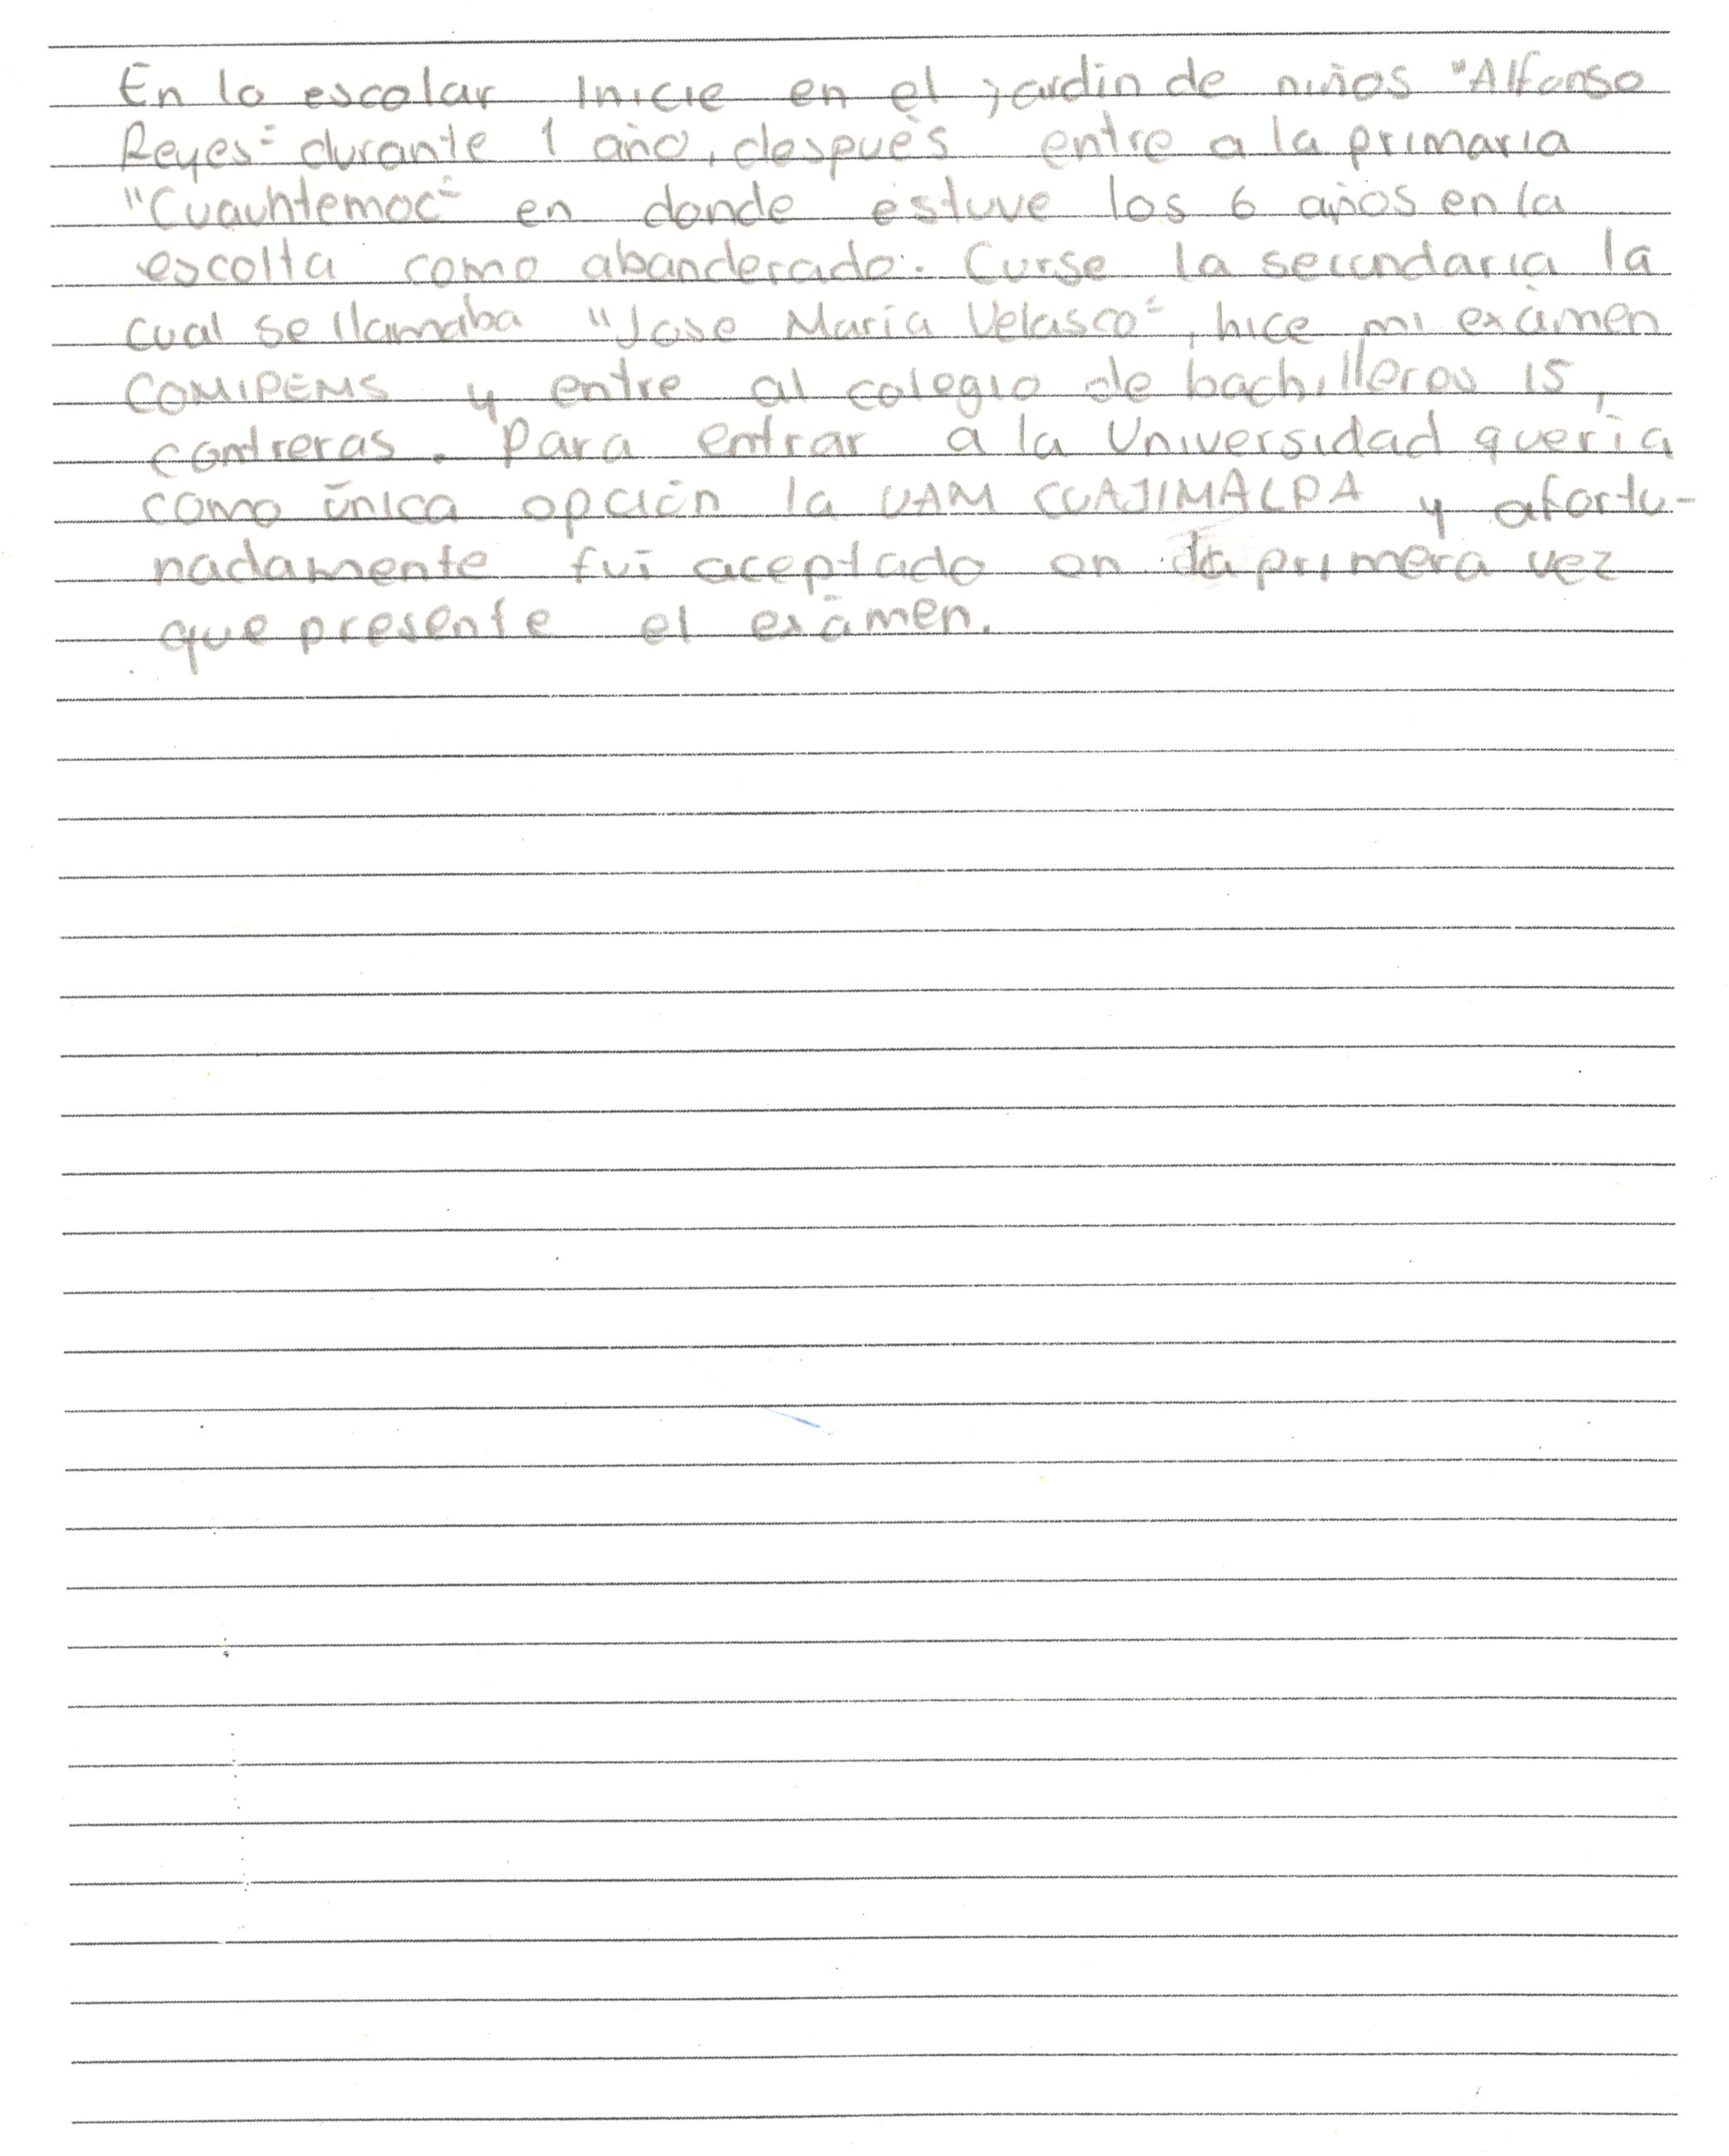 En lo escolar Inicie en el jardin de niños "Alfonso
Reyes" durante 1 año, después entre a la primaria
"Cuauhtemoc" en donde estuve los 6 años en la
escolta como abanderado. Curse la secundaria la
cual se llamaba "Jose María Velasco", hice mi exámen
COMIPEMS y entre al colegio de bachilleres 15,
contreras. Para entrar a la Universidad quería
como única opción la UAM CUAJIMALPA y afortu-
nadamente fui aceptado en la primera vez
que presente el exámen.